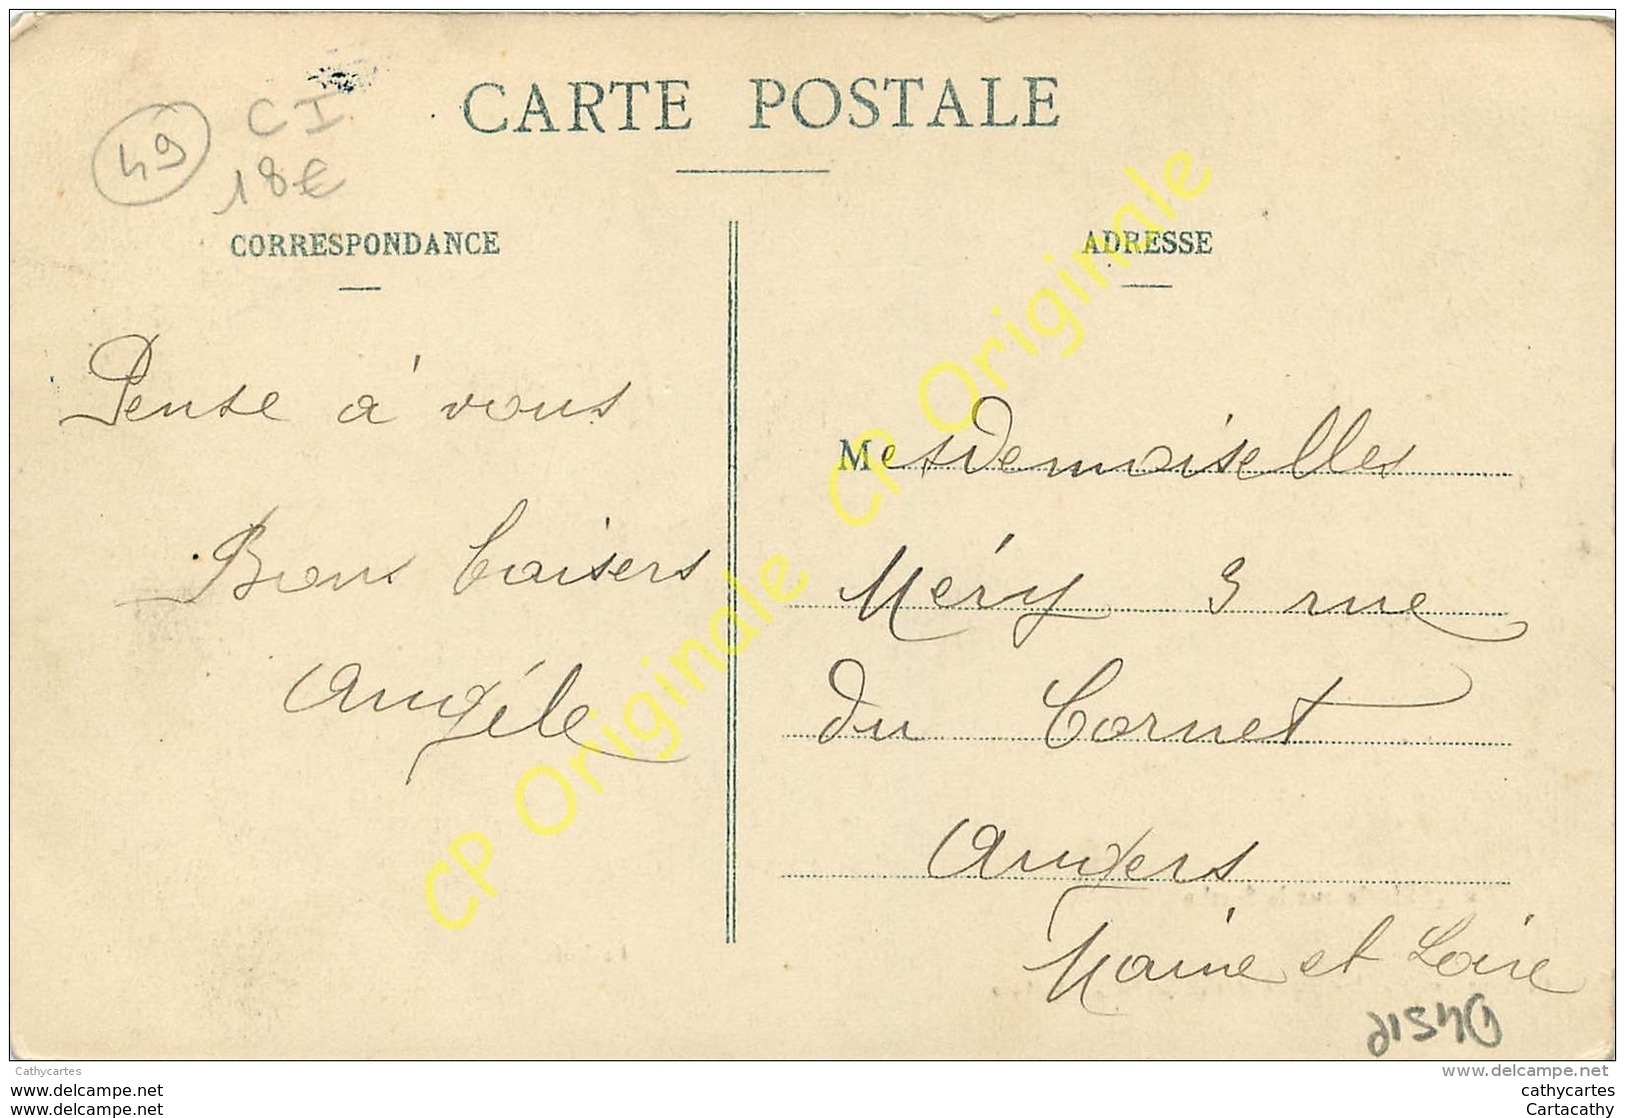 CARTE POSTALE
49
CI
18€
CORRESPONDANCE
Pense à vous
Bons baisers
Angèle
ADRESSE
Mesdemoiselles
Méry 3 rue
du Cornet
Angers
Maine et Loire
CP Originale CP Originale
Cathycartes
www.delcampe.net
www.delcampe.net
www.delcampe.net
cathycartes
Cartacathy